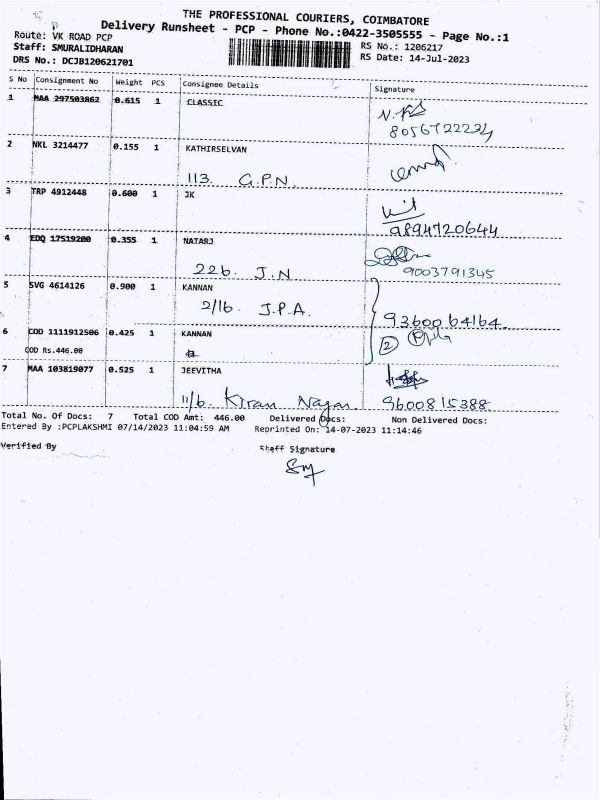 THE PROFESSIONAL COURIERS, COIMBATORE
Delivery Runsheet - PCP - Phone No.:0422-3505555 - Page No.:1
Route: VK ROAD PCP
RS No.: 1206217
Staff: SMURALIDHARAN
RS Date: 14-Jul-2023
DRS No.: DCJB120621701
S No Consignment No Weight PCS Consignee Details Signature
1 MAA 297503862 0.615 1 CLASSIC
8056722234
2 NKL 3214477 0.155 1 KATHIRSELVAN
113. G.P.N.
3 TRP 4912448 0.600 1 JK
9894720644
4 EDQ 17519200 0.355 1 NATARJ
226. J.N
9003791345
5 SVG 4614126 0.900 1 KANNAN
2/16. J.P.A.
9360064164.
6 COD 1111912506 0.425 1 KANNAN
2
COD Rs.446.00
7 MAA 103819077 0.525 1 JEEVITHA
11/6. Kiran Nagar. 9600815388
Total No. Of Docs: 7 Total COD Amt: 446.00 Delivered Docs: Non Delivered Docs:
Entered By :PCPLAKSHMI 07/14/2023 11:04:59 AM Reprinted On: 14-07-2023 11:14:46
Verified By Staff Signature